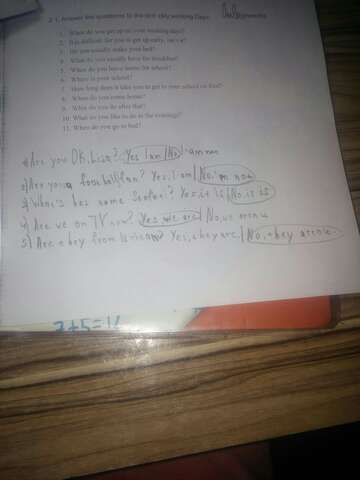 2. 1. Answer the questions to the text «My working Day»
1. When do you get up on your working days?
2. Is it difficult for you to get up early,
3. Do you usually make your bed?
4. What do you usually have for breakfast?
5. When do you leave home for school?
6. Where is your school?
7. How long does it take you to get to your school on foot?
8. When do you come home?
9. What do you do after that?
10. What do you like to do in the evenings?
11. When do you go to bed?
Are you OK, Lisa? Yes I am | No, I am
2) Are you a football fan? Yes, I am | No, I'm not
3) name Yes, it is | No, it is
4) Are we on TV now? Yes, we are | No, we
5) Are they from Yes, they are | No, they
3+5=